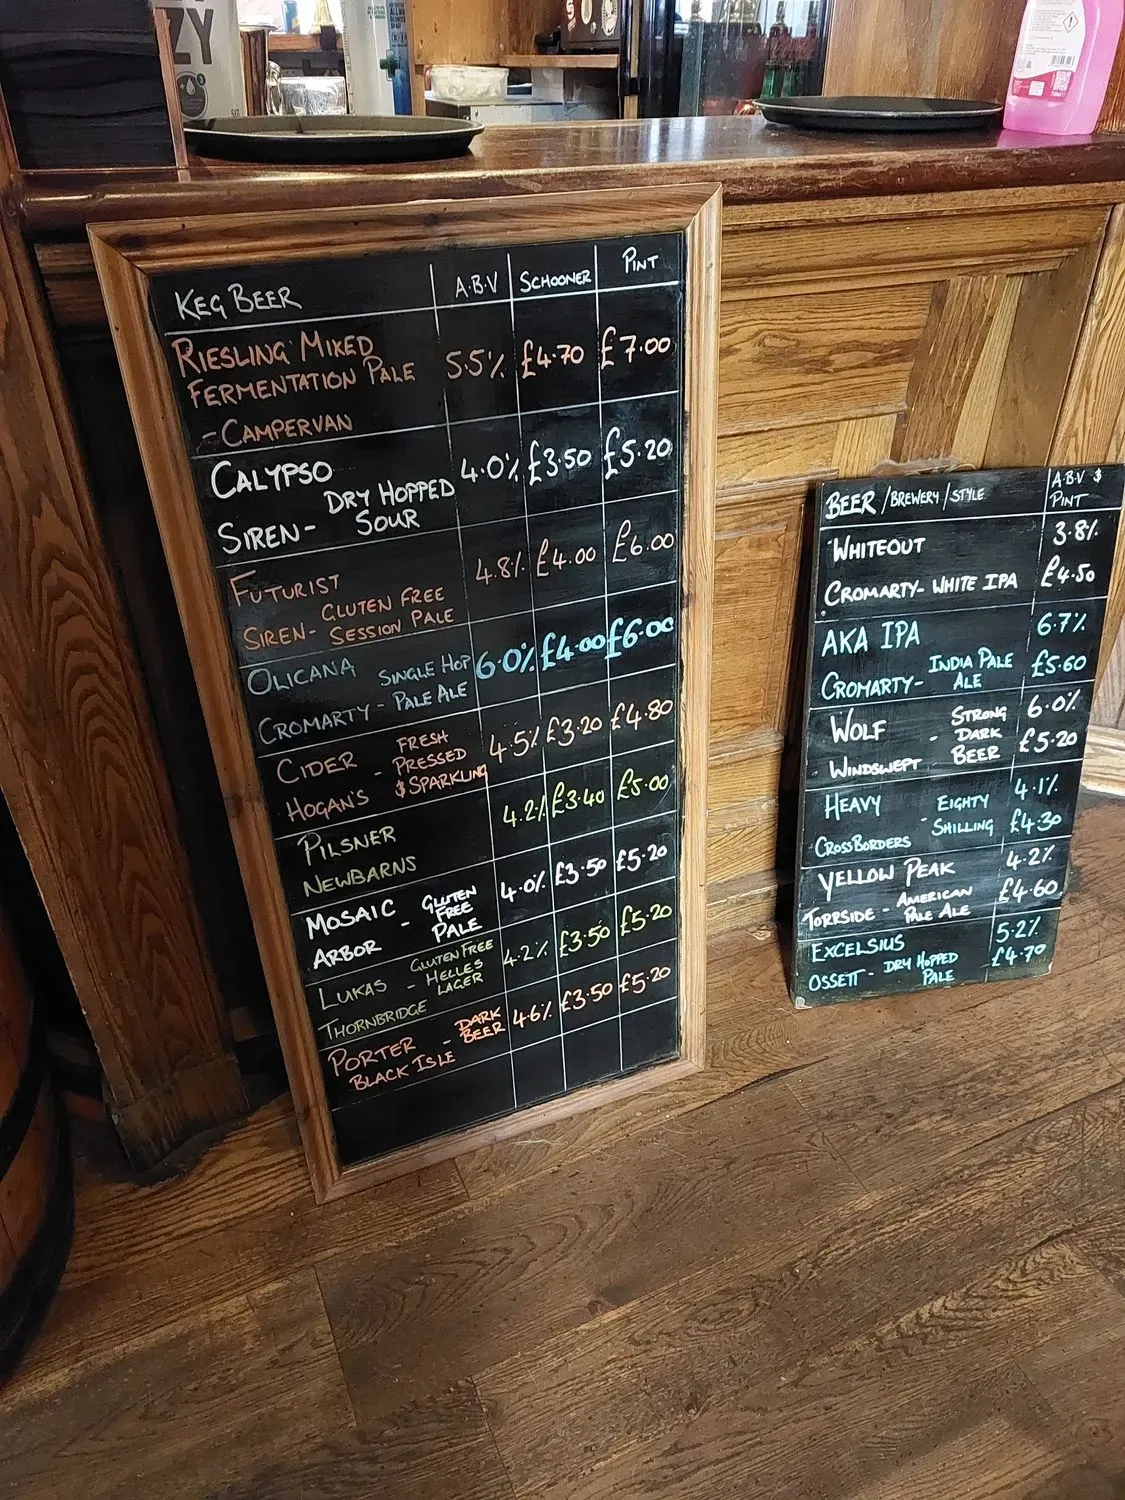 ZY
KEG BEER A.B.V SCHOONER PINT
RIESLING MIXED
FERMENTATION PALE 5.5% £4.70 £7.00
- CAMPERVAN
CALYPSO 4.0% £3.50 £5.20
DRY HOPPED
SIREN - SOUR
FUTURIST 4.8% £4.00 £6.00
GLUTEN FREE
SIREN - SESSION PALE
OLICANA SINGLE HOP 6.0% £4.00 £6.00
CROMARTY - PALE ALE
CIDER FRESH 4.5% £3.20 £4.80
- PRESSED
HOGAN'S & SPARKLING
PILSNER 4.2% £3.40 £5.00
NEWBARNS
MOSAIC GLUTEN 4.0% £3.50 £5.20
- FREE
ARBOR PALE
LUKAS GLUTEN FREE 4.2% £3.50 £5.20
- HELLES
THORNBRIDGE LAGER
PORTER - DARK BEER 4.6% £3.50 £5.20
BLACK ISLE
BEER / BREWERY / STYLE A.B.V & PINT
WHITEOUT 3.8%
CROMARTY - WHITE IPA £4.50
AKA IPA 6.7%
CROMARTY - INDIA PALE ALE £5.60
WOLF STRONG 6.0%
- DARK
WINDSWEPT BEER £5.20
HEAVY - EIGHTY 4.1%
CROSSBORDERS SHILLING £4.30
YELLOW PEAK 4.2%
TORRSIDE - AMERICAN PALE ALE £4.60
EXCELSIUS 5.2%
OSSETT - DRY HOPPED PALE £4.70